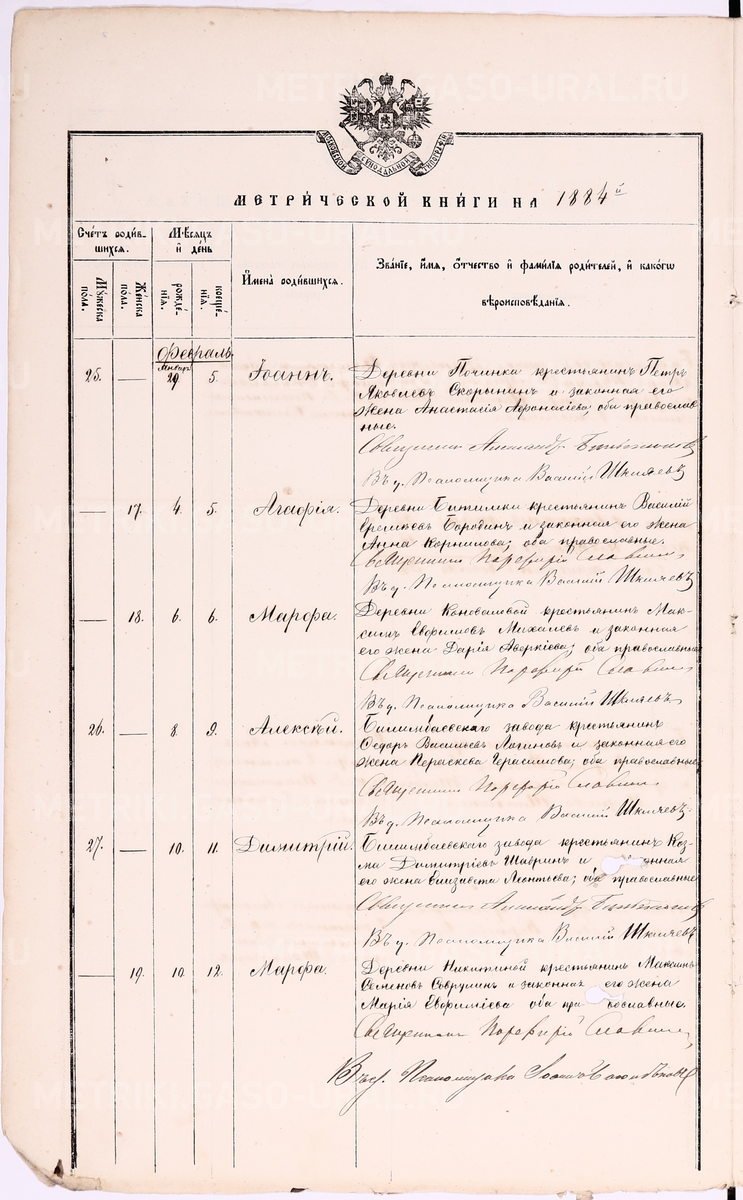 МЕТРИЧЕСКОЙ КНИГИ НА 1884й
Счетъ родив-
шихся.
Мѣсяцъ
и день
Мужеска
пола.
Женска
пола.
рожде-
нія.
креще-
нія.
Имена родившихся.
Званіе, имя, отчество и фамилія родителей, и какого
вѣроисповѣданія.
Февраль
25. — Январь 29 5. Іоаннъ.
Деревни Починка крестьянинъ Петръ
Яковлевъ Скорынинъ и законная его
жена Анастасія Аѳонасіева; оба православ-
ные.
Священникъ Александръ
Въ д. Псаломщика Василій Шиляевъ
— 17. 4. 5. Агаѳія.
Деревни Битимки крестьянинъ Василій
Еремѣевъ Бородинъ и законная его жена
Анна Корнилова; оба православные.
Священникъ Порфирій Славнин
Въ д. Псаломщика Василій Шиляевъ
— 18. 6. 6. Марѳа.
Деревни Коноваловой крестьянинъ Мак-
симъ Евфимовъ Михалевъ и законная
его жена Дарія Аверкіева; оба православные
Священникъ Порфирій Славнин
Въ д. Псаломщика Василій Шиляевъ
26. — 8. 9. Алексѣй.
Билимбаевскаго завода крестьянинъ
Ѳедоръ Васильевъ Логиновъ и законная его
жена Параскева Герасимова; оба православные
Священникъ Порфирій Славнин
Въ д. Псаломщика Василій Шиляевъ
27. — 10. 11. Димитрій.
Билимбаевскаго завода крестьянинъ Коз-
ма Димитріевъ Шавринъ и онная
его жена Елизавета Леонтьева; оба православные
Священникъ Александръ
Въ д. Псаломщика Василій Шиляевъ
— 19. 10. 12. Марѳа.
Деревни Никитиной крестьянинъ Максимъ
Семеновъ и законная его жена
Марія Евфиміева оба пра вославные.
Священникъ Порфирій Славнин
Въ д. Псаломщика Іоаннъ